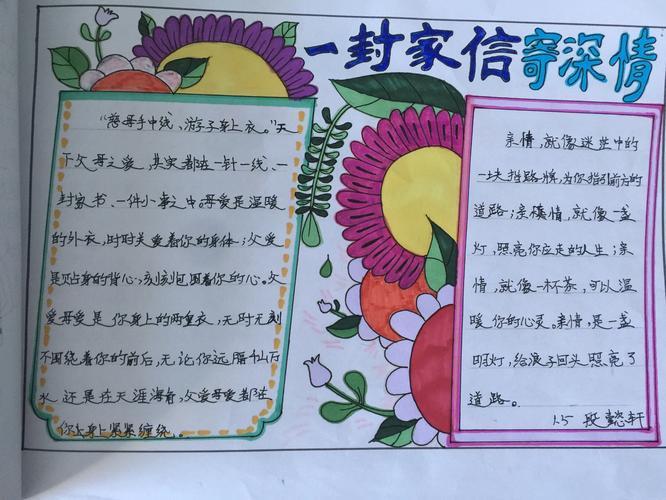 一封家信寄深情
“慈母手中线、游子身上衣。”天
下父母之爱，其实都在一针一线、一
封家书、一件小事之中母爱是温暖
的外衣，时时关爱着你的身体；父爱
是贴身的背心，刻刻包围着你的心。父
爱母爱是你身上的两重衣，无时无刻
不围绕着你的前后，无论你远隔千山万
水，还是在天涯海角，父爱母爱都在
你身上紧紧缠绕。
亲情，就像迷茫中的
一块指路牌，为你指引前方的
道路；亲情，就像一盏
灯，照亮你应走的人生；亲
情，就像一杯茶，可以温
暖你的心灵。亲情，是一盏
明灯，给浪子回头照亮了
道路。
1.5 段懿轩